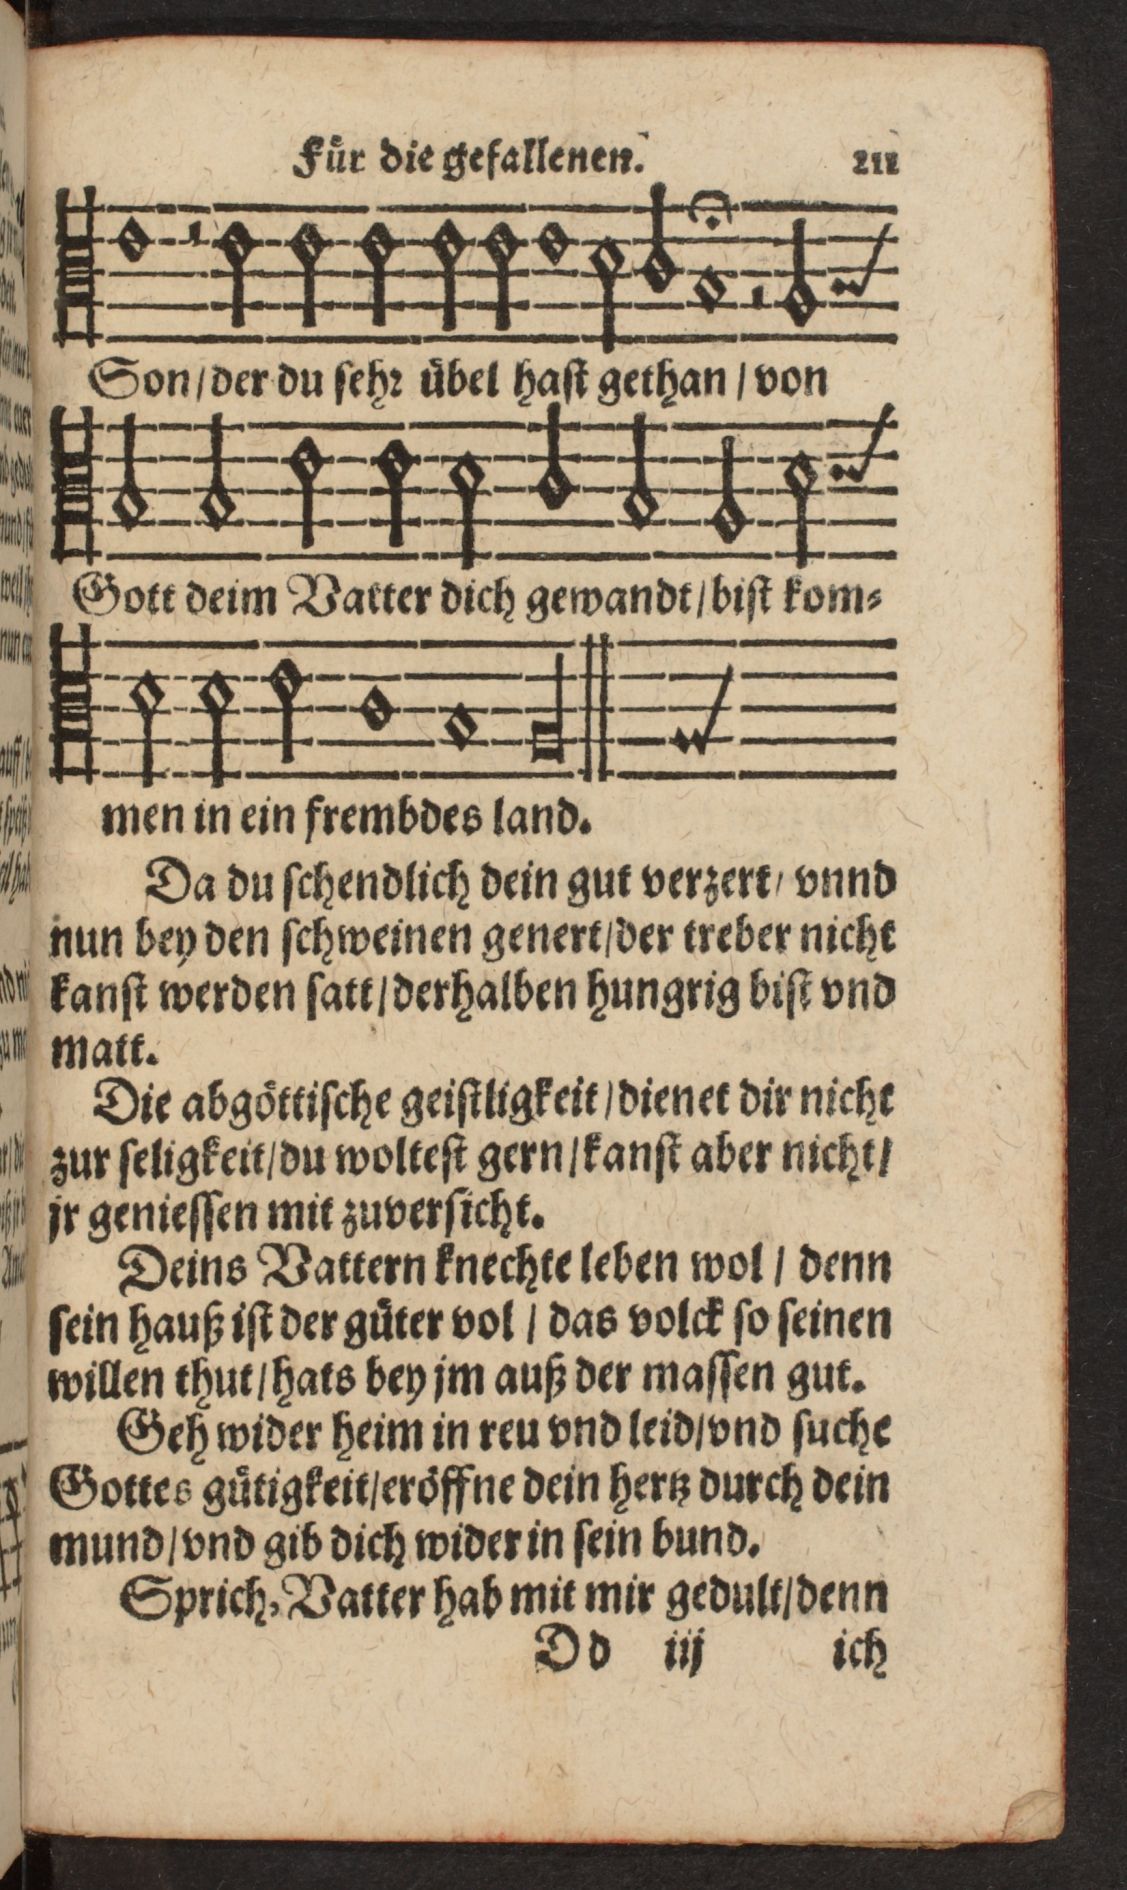 Für die gefallenen. 211
Son/der du sehr übel hast gethan/von
Gott deim Vatter dich gewandt/bist kom-
men in ein frembdes land.
Da du schendlich dein gut verzert/vnnd
nun bey den schweinen genert/der treber nicht
kanst werden satt/derhalben hungrig bist vnd
matt.
Die abgöttische geistligkeit/dienet dir nicht
zur seligkeit/du woltest gern/kanst aber nicht/
jr geniessen mit zuversicht.
Deins Vattern knechte leben wol/denn
sein hauß ist der güter vol/das volck so seinen
willen thut/hats bey jm auß der massen gut.
Geh wider heim in reu vnd leid/vnd suche
Gottes gütigkeit/eröffne dein hertz durch dein
mund/vnd gib dich wider in sein bund.
Sprich, Vatter hab mit mir gedult/denn
Dd iij ich